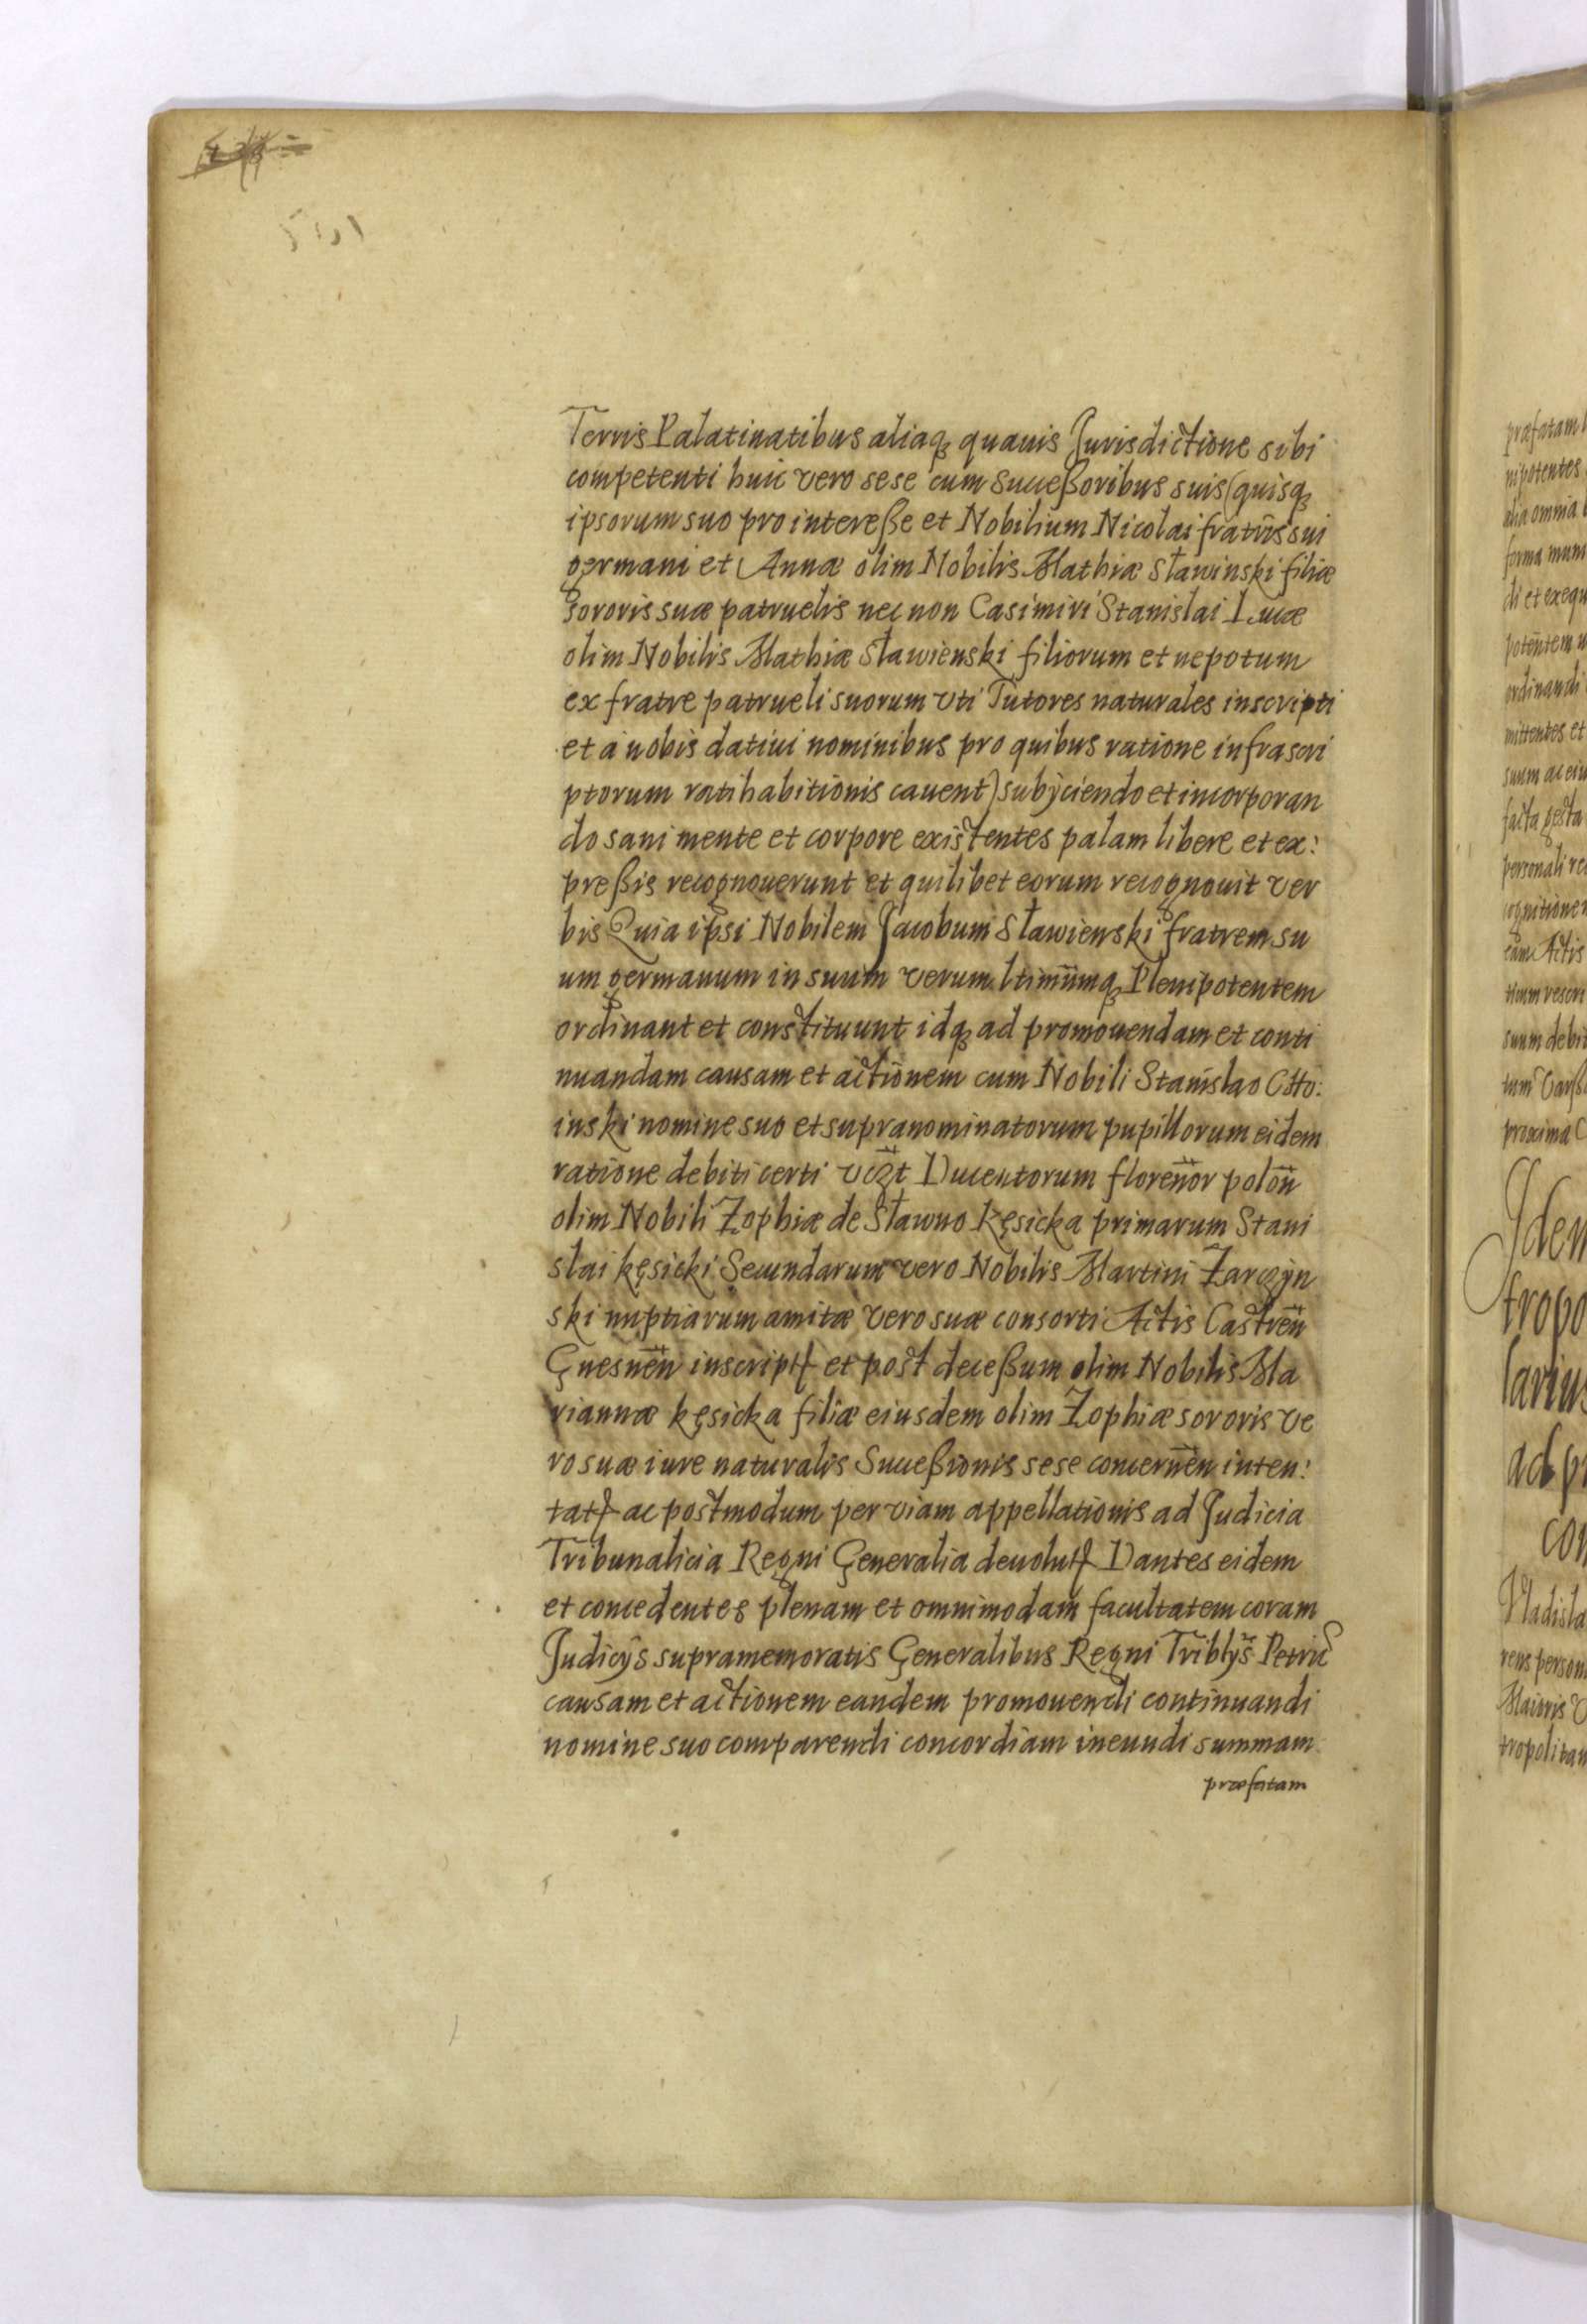 Terris Palatinatibus aliaqꝫ quauis Jurisdictione sibi
competenti huic vero sese cum Succeßoribus suis (quisqꝫ
ipsorum suo pro intereße et Nobilium Nicolai fratris sui
germani et Annæ olim Nobilis Mathiæ Sławinski filiæ
sororis suæ patruelis nec non Casimiri Stanislai Lucæ
olim Nobilis Mathiæ Sławienski filiorum et nepotum
ex fratre patrueli suorum vti Tutores naturales inscripti
et a nobis datiui nominibus pro quibus ratione infrascri
ptorum ratihabitionis cauent) subÿciendo et incorporan
do sani mente et corpore existentes palam libere et ex:
preßis recognouerunt et quilibet eorum recognouit ver
bis Quia ipsi Nobilem Jacobum Sławienski fratrem su
um germanum in suum verum ltimum̃qꝫ Plenipotentem
ordinant et constituunt idqꝫ ad promouendam et conti
nuandam causam et actionem cum Nobili Stanislao Otto:
inski nomine suo et supranominatorum pupillorum eidem
ratione debiti certi vcꝫt Ducentorum floren̄or polon̄
olim Nobili Zophiæ de Sławno Kęsicka primarum Stani
slai kęsicki Secundarum vero Nobilis Martini Zarczÿn
ski nuptiarum amitæ vero suæ consorti Actis Castren̄
Gnesnen̄ inscriptꝭ et post deceßum olim Nobilis Ma
riannæ kęsicka filiæ eiusdem olim Zophiæ sororis ve
ro suæ iure naturalis Succeßionis sese concernen̄ inten:
tatꝭ ac postmodum per viam appellationis ad Judicia
Tribunalicia Regni Generalia deuolutꝭ Dantes eidem
et concedentes plenam et omnimodam facultatem coram
Judicÿs supramemoratis Generalibus Regni Triblÿs Petric
causam et actionem eandem promouendi continuandi
nomine suo comparendi concordiam ineundi summam
præfatam
præfatam
nipotentes
alia omnia
forma mun
di et exequ
potentem
ordinandi
mittentes et
suum ac eiu
facta gesta
personali re
cognitione
eam Actis
suum debit
proxima
Idem
tropo
larius
ad pr
con
Vladisla
rens person
Maioris
tropolitan